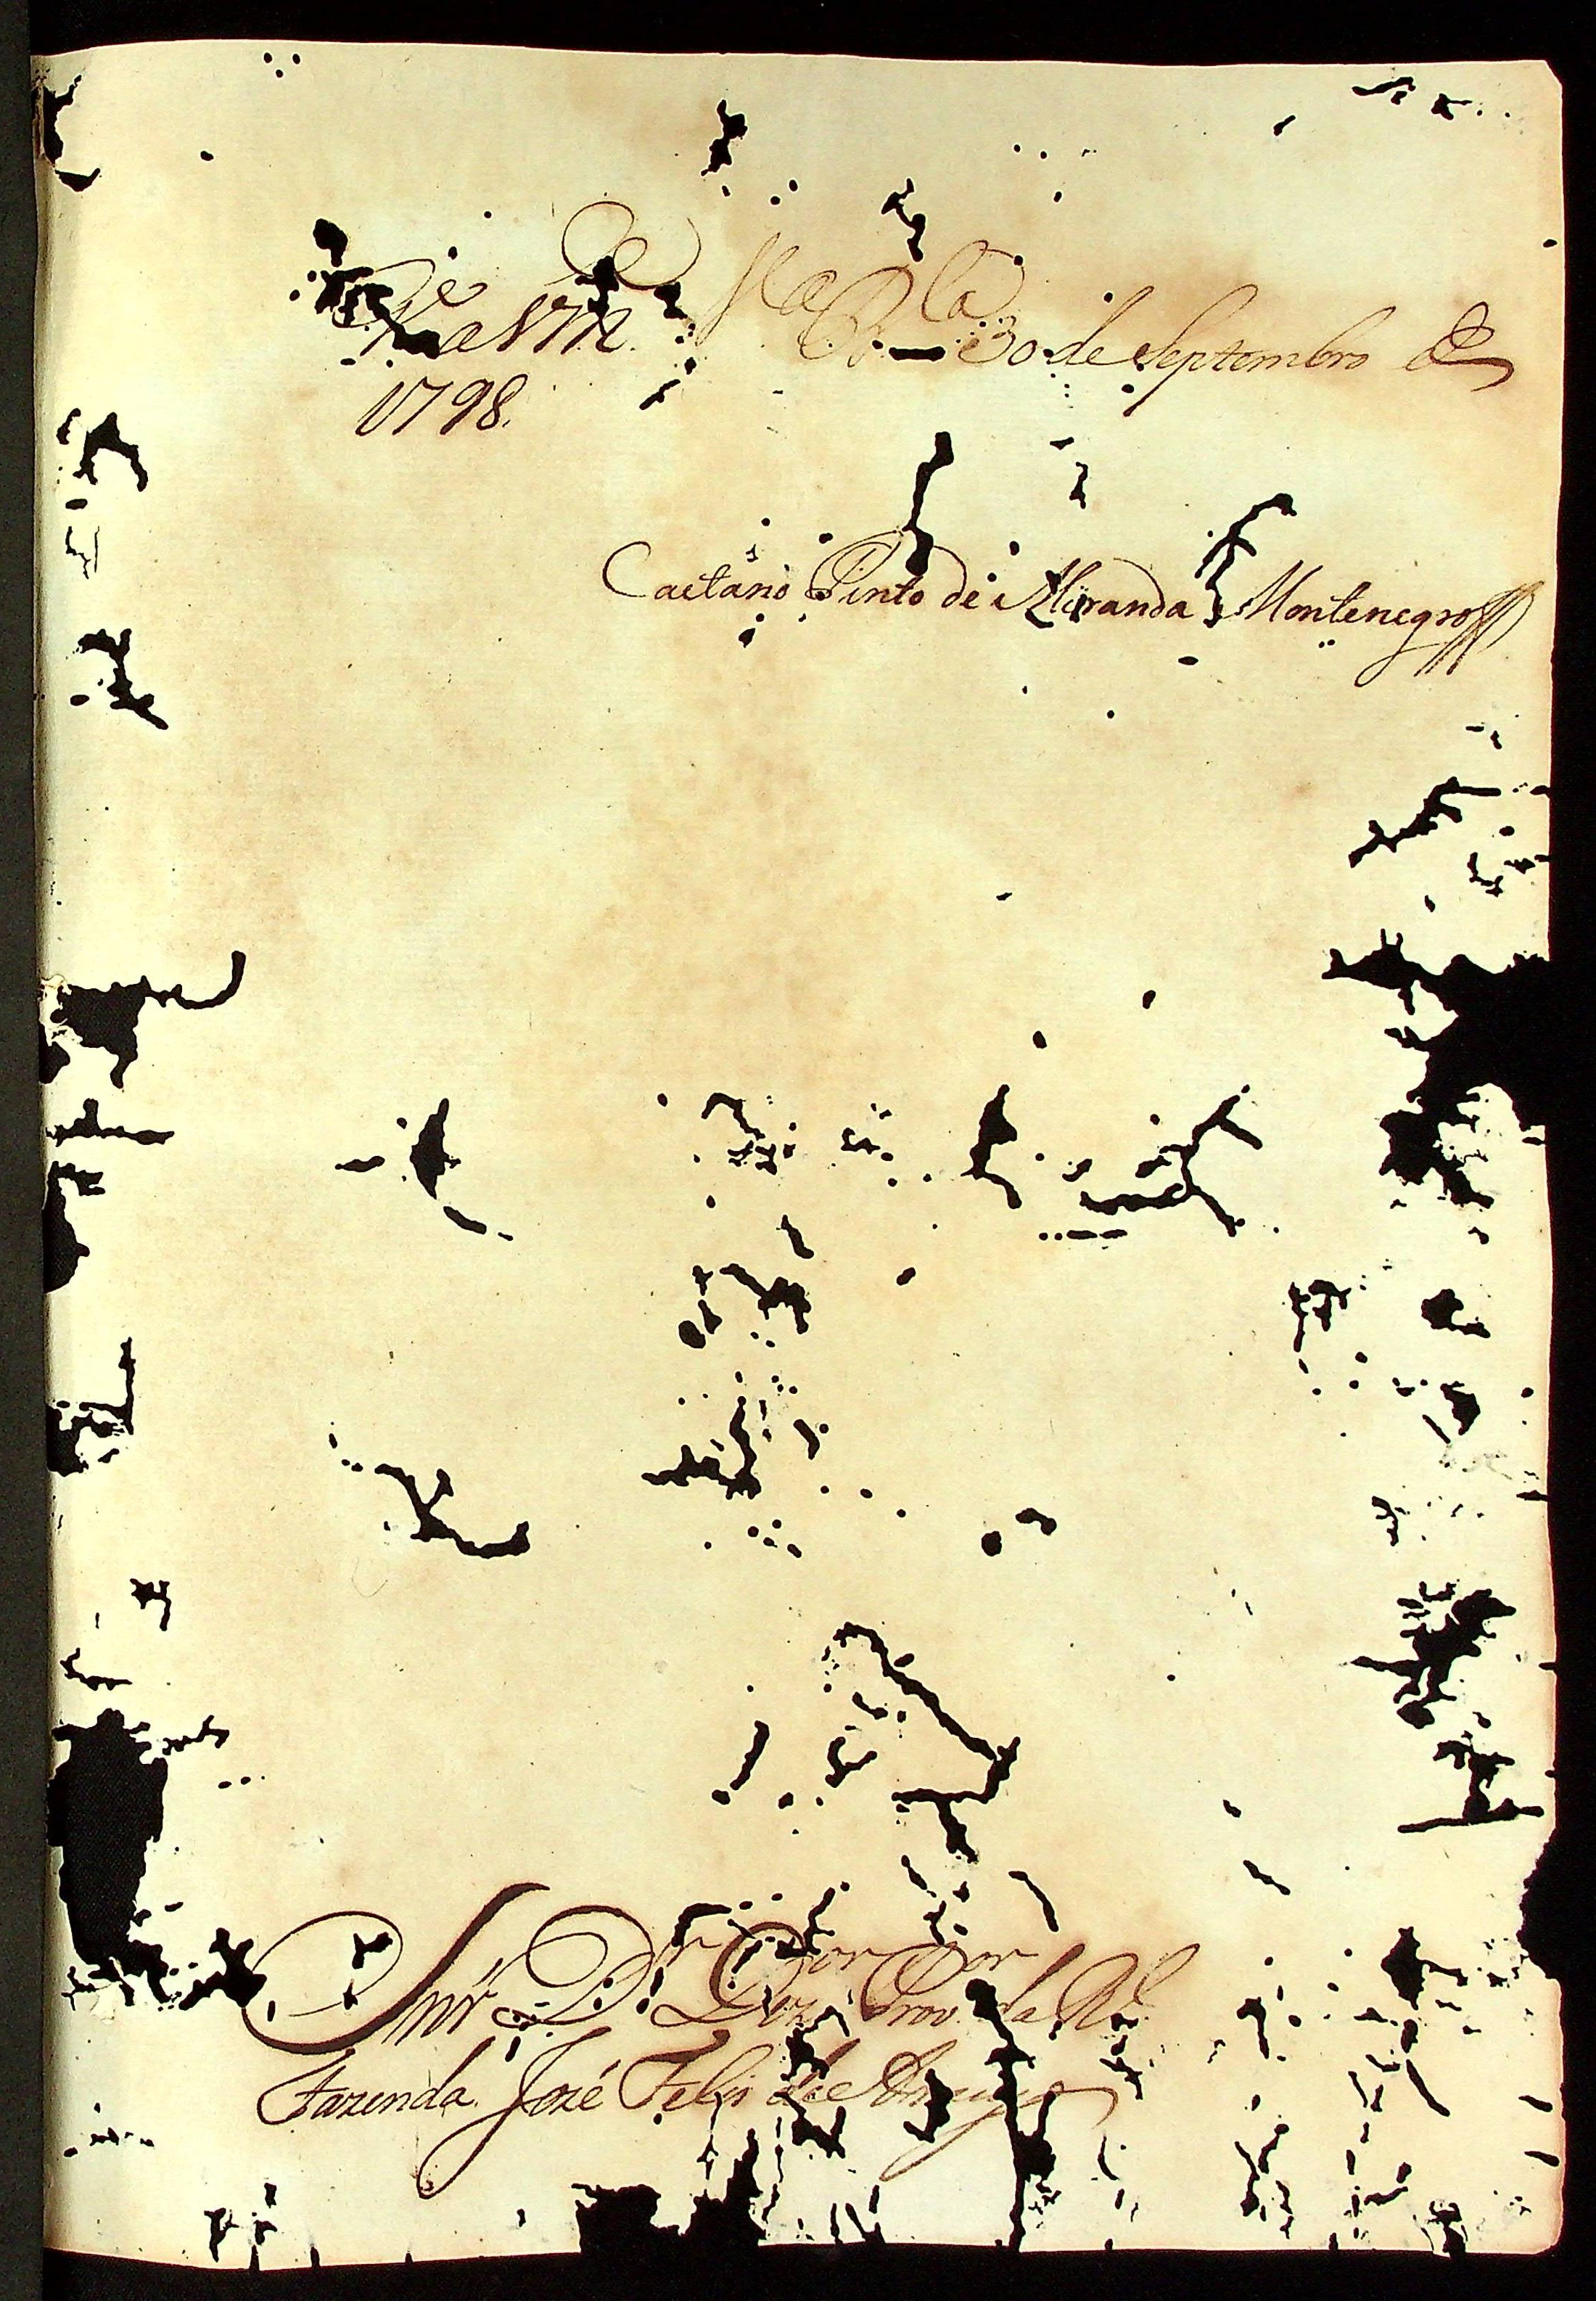 De G.e a Vm.ce V.a B.la 30 de Septembro de
1798.
Caetano Pinto de Miranda Montenegro
Snr D.r Dez.or Prov.or da R.l
Fazenda José Felis de